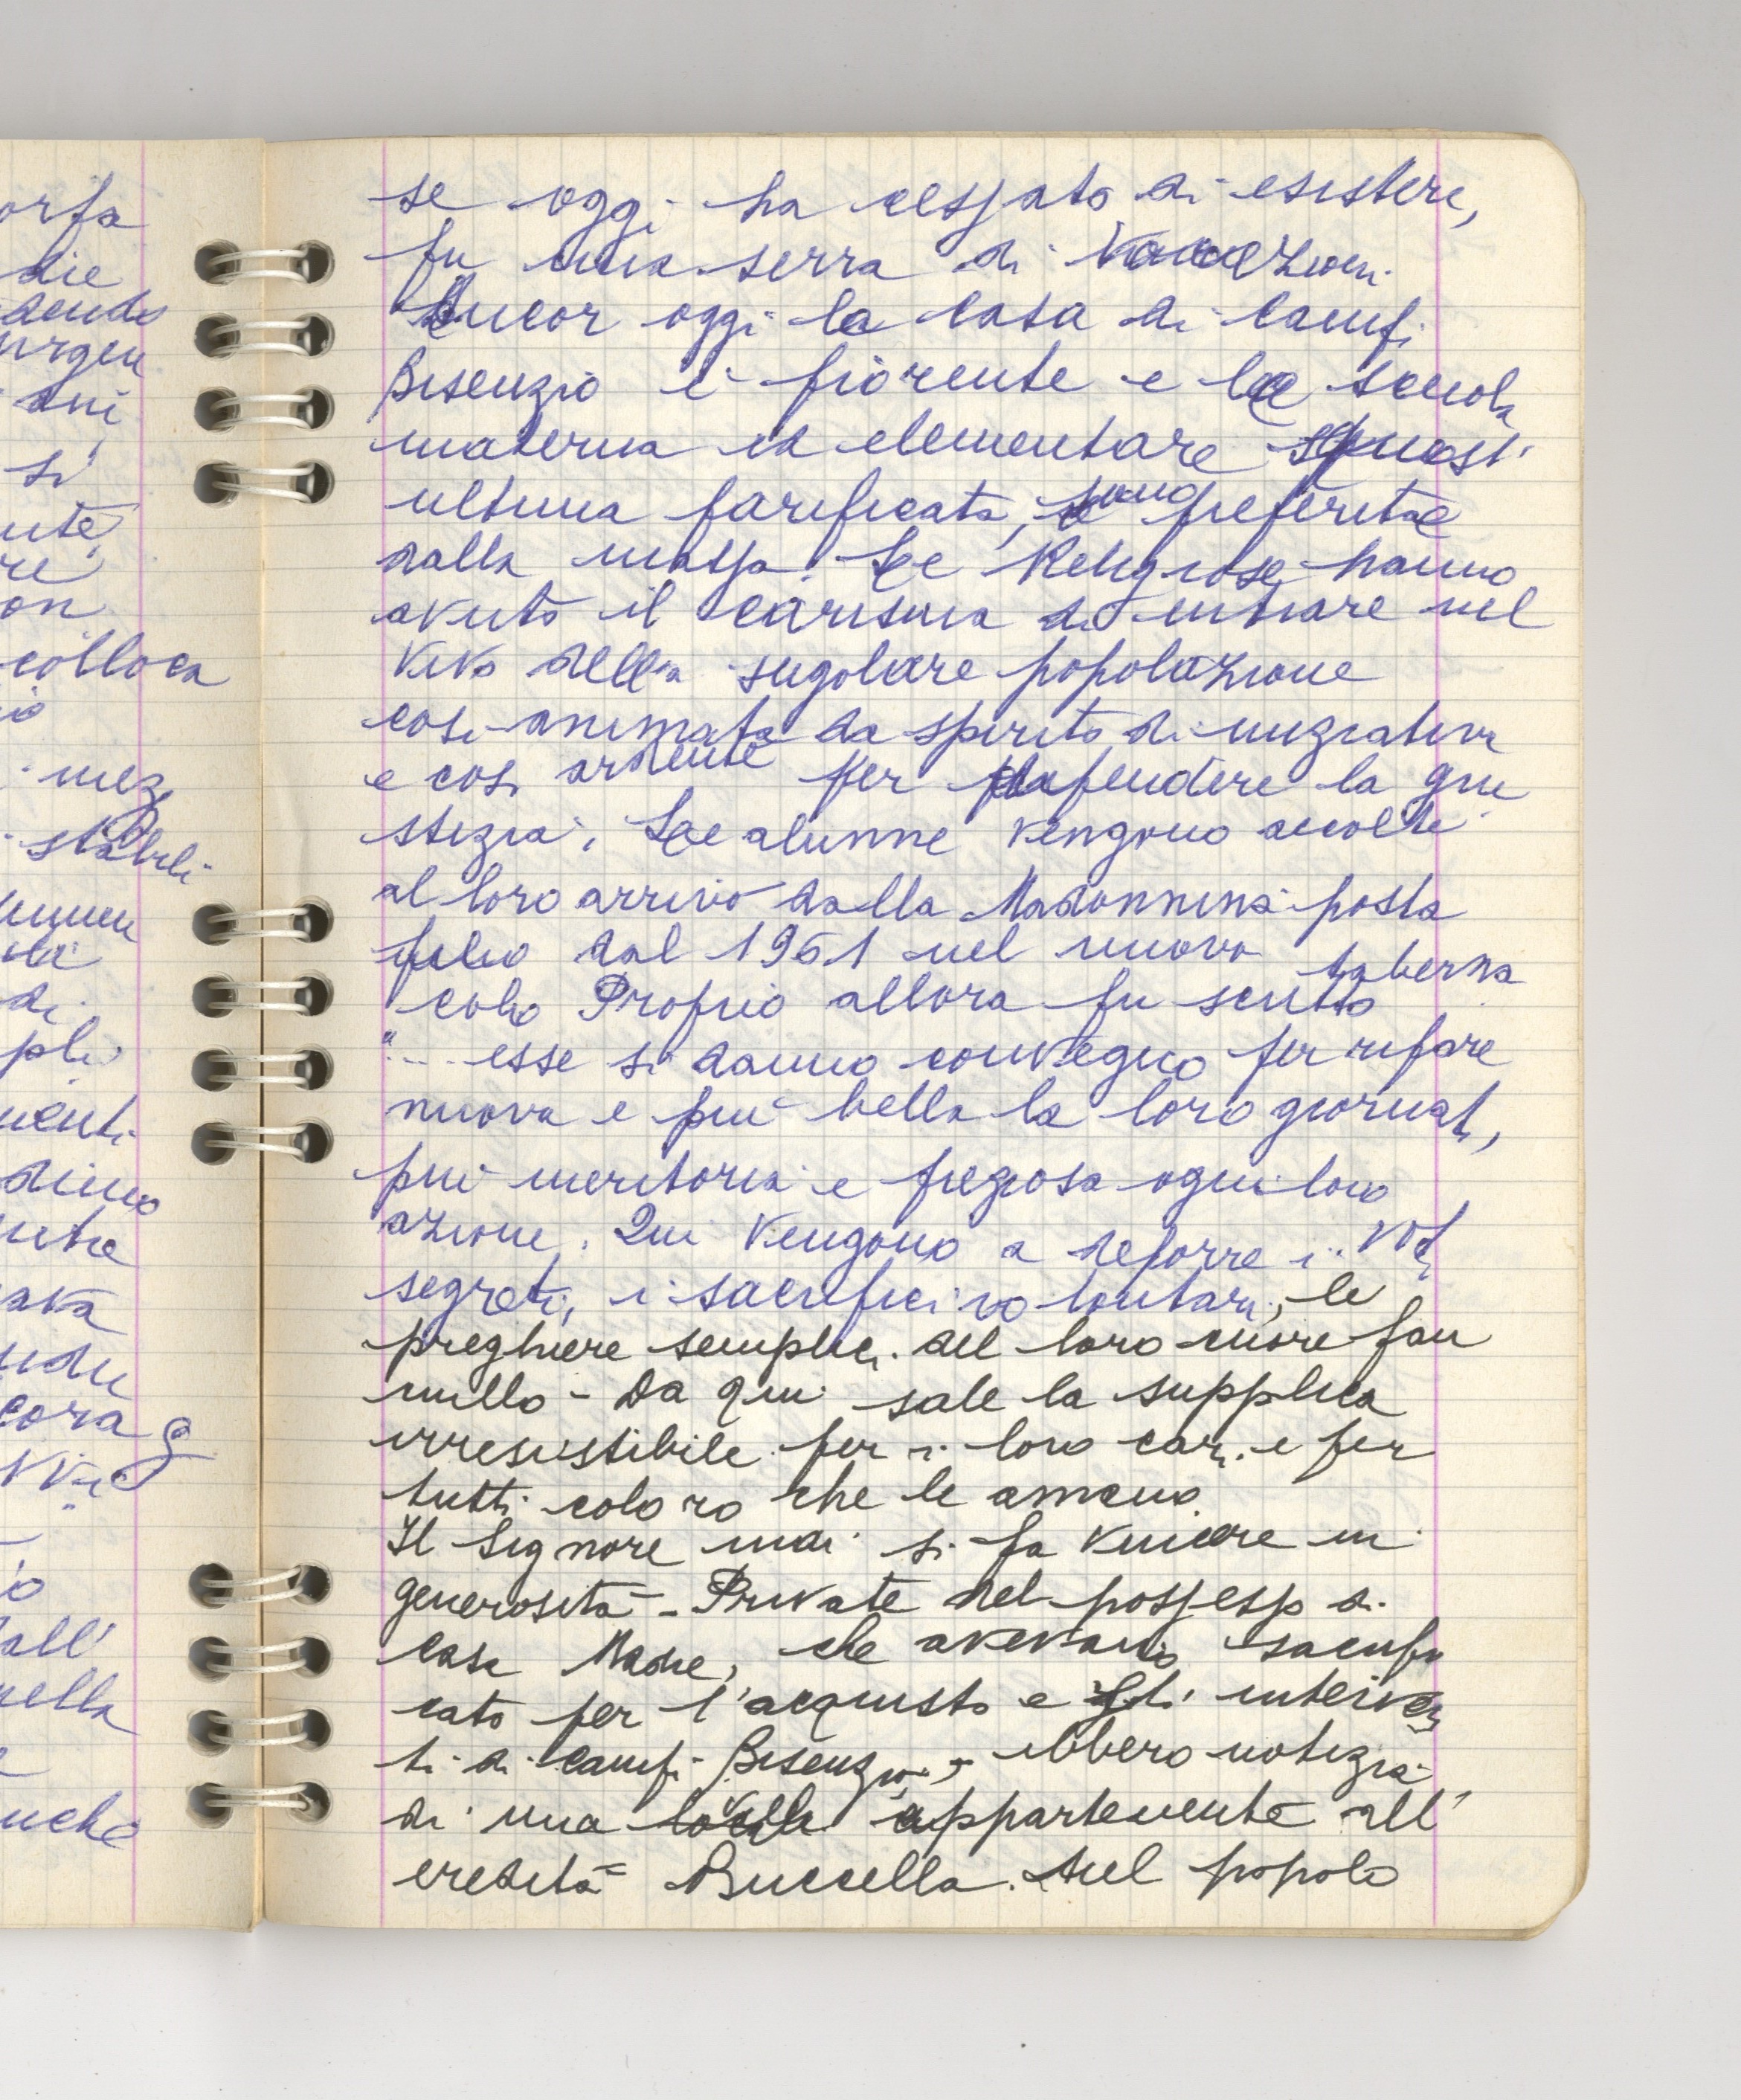 orfa
die
dendo
urgen
ani
si
nte,
re
on
colloca
io
mez
stabili
di
pli
menti
dimo
ntre
ava
cora
vvie
io
all'
nella
e
nche
se oggi ha cessato di esistere,
fu una serra di vocazioni.
Ancor oggi la Casa di Campi
Bisenzio è fiorente e la scuola
materna ed elementare quest'
ultima parificata, sono preferite
dalla massa. Le Religiose hanno
avuto il carisma di entrare nel
vivo della singolare popolazione
così animata da spirito di iniziativa
e così ardente per difendere la giu
stizia. Le alunne vengono accolte
al loro arrivo dalla Madonnina posta
fino dal 1961 nel nuovo taberna
colo Proprio allora fu scritto
"... esse si danno convegno per rifare
nuova e più bella la loro giornata,
più meritoria e preziosa ogni loro
azione. Qui vengono a deporre i voti
segreti, i sacrifici volontari, le
preghiere semplici del loro cuore fan
ciullo - Da qui sale la supplica
irresistibile per i loro cari e per
tutti coloro che le amano.
Il Signore mai si fa vincere in
generosità - Private del possesso di
Casa Madre, che avevano sacrifi
cato per l'acquisto e gli interven
ti di Campi Bisenzio, ebbero notizia
di una villa appartenente all'
eredità Buccella. Nel popolo